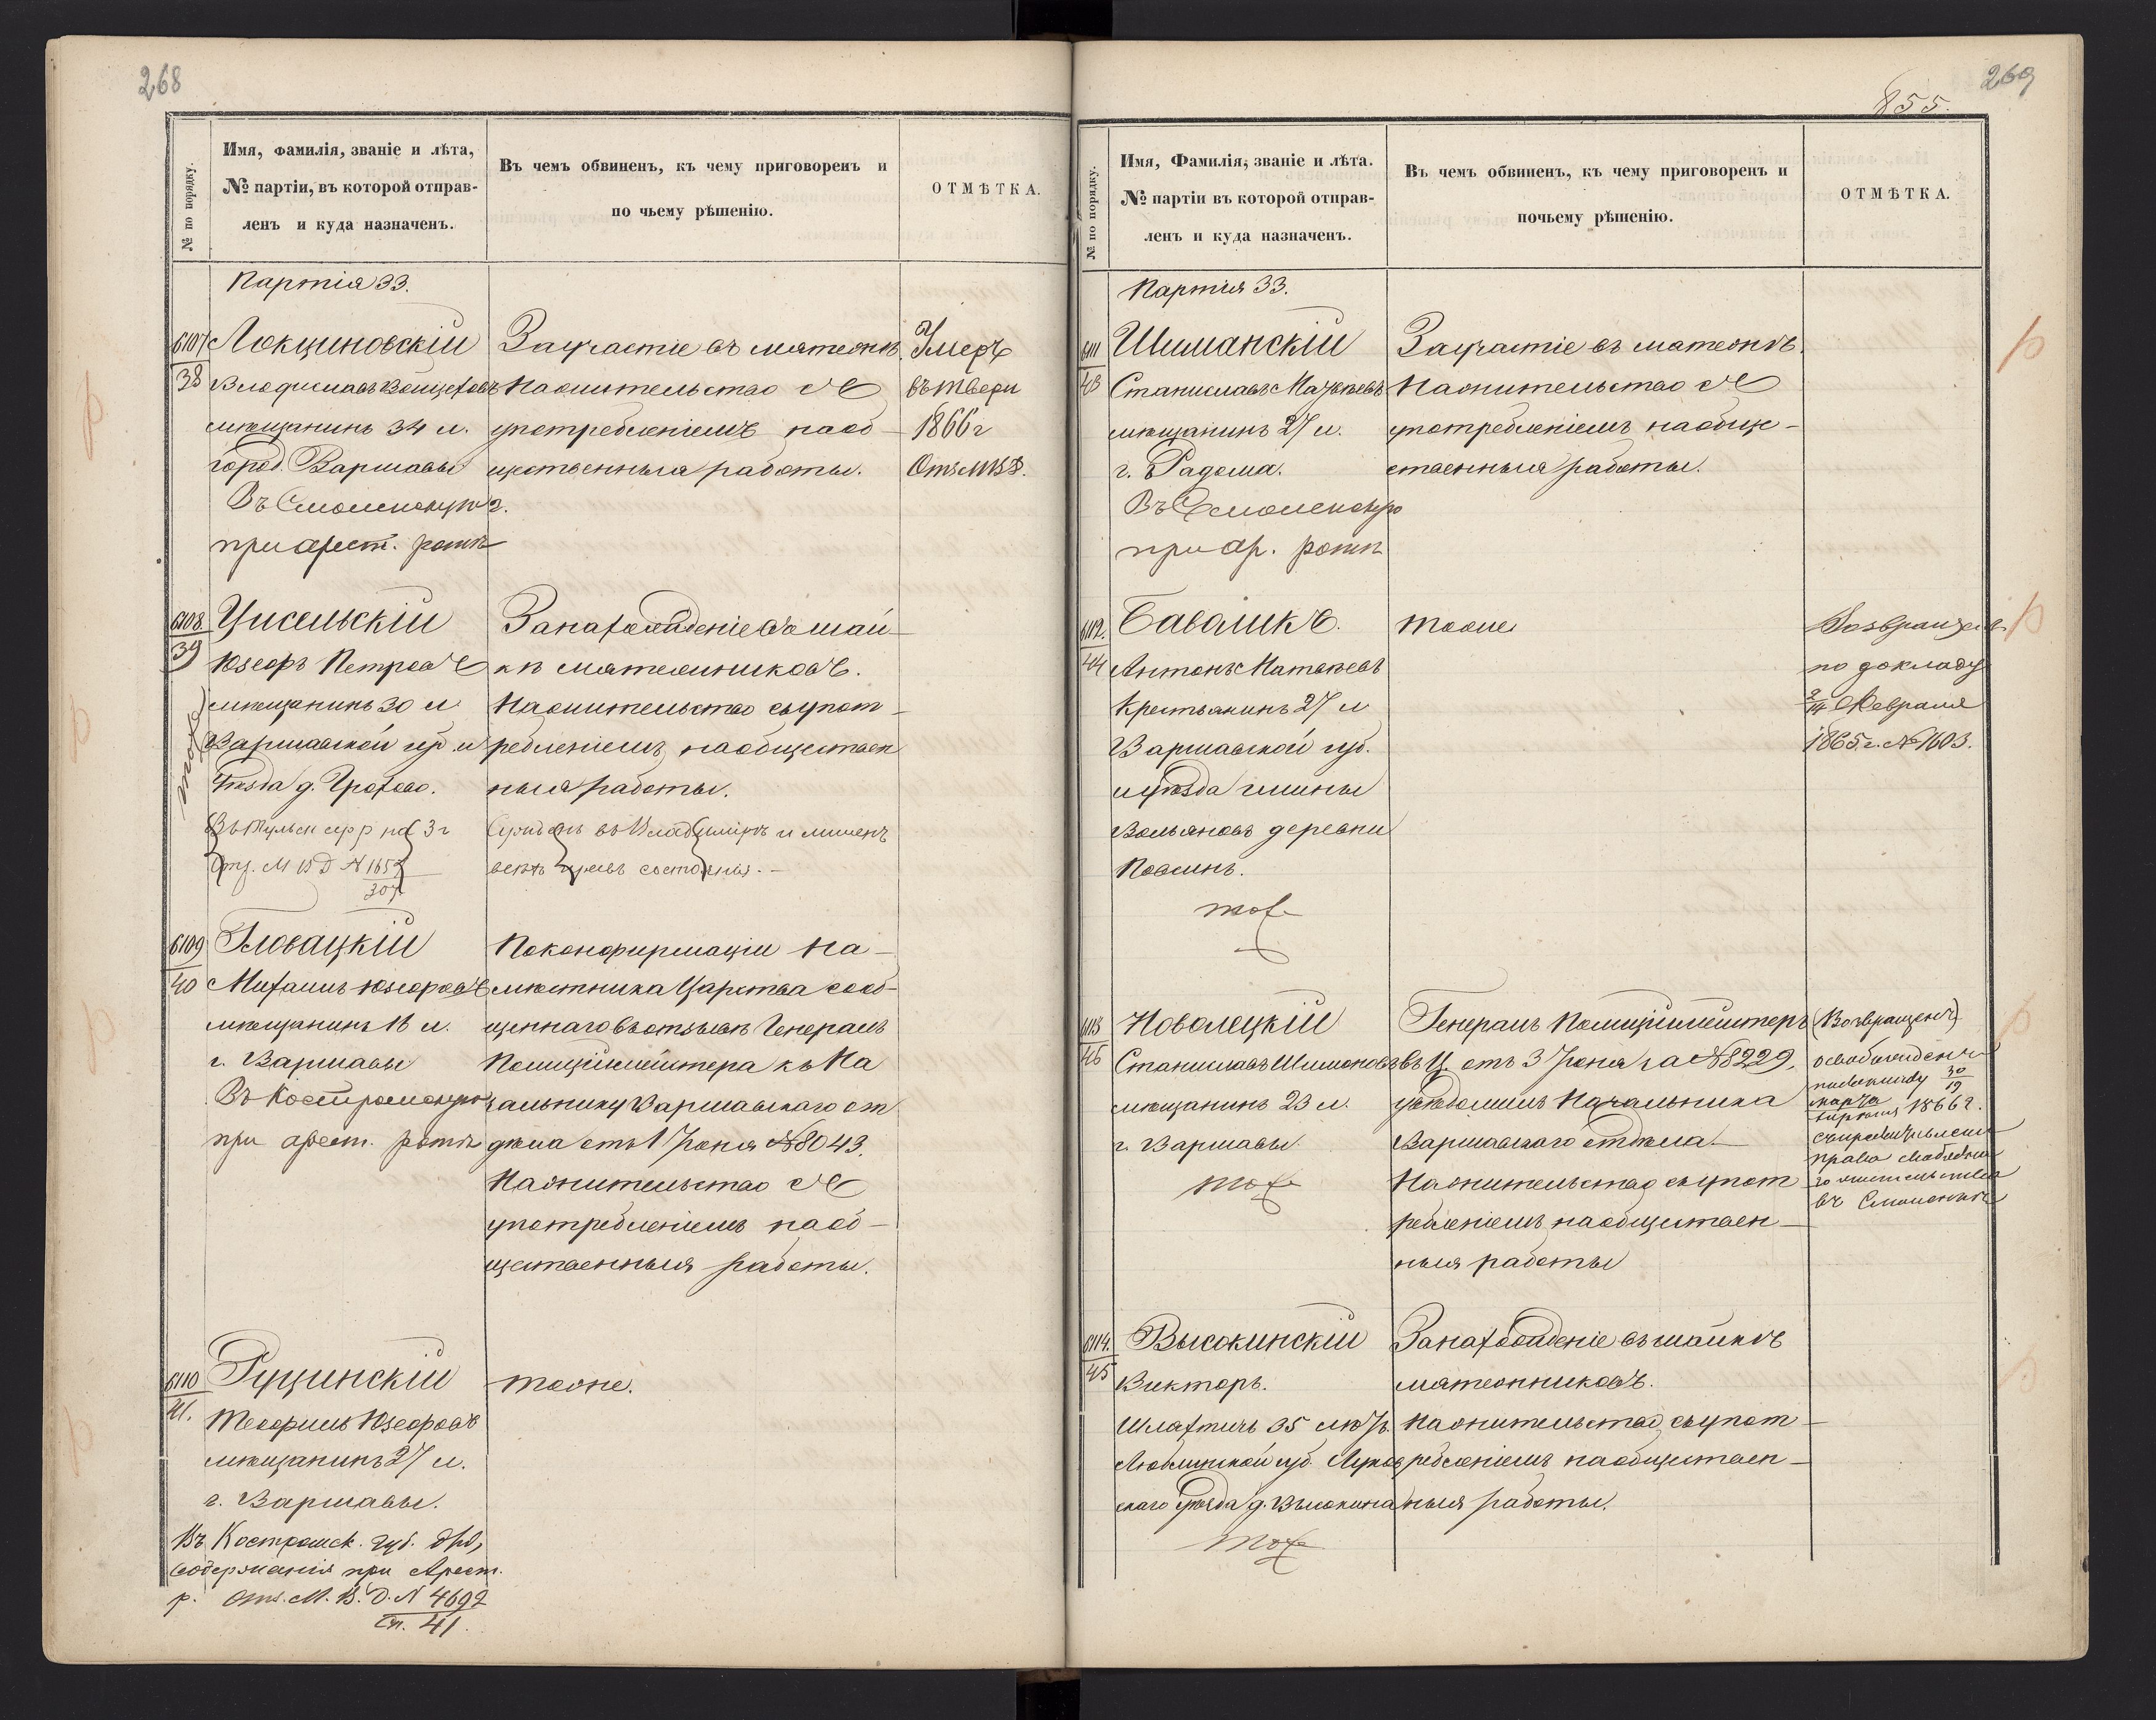 268
№ по порядку.
Имя, фамилія, званіе и лѣта,
№ партіи, въ которой отправ-
ленъ и куда назначенъ.
Въ чемъ обвиненъ, къ чему приговоренъ и
по чьему рѣшенію.
ОТМѢТКА.
Партія 33.
6107
38
Локциновскій
Владиславъ Войцеховъ
мѣщанинъ 34 л.
город. Варшавы
Въ Смоленскую г.
при арест. ротѣ
За участіе въ мятежѣ.
На жительство съ
употребленіемъ на об-
щественныя работы.
Умеръ
въ Твери
1866 г
От. М В Д.
6108
39
Цисельскій
Юзефъ Петровъ
мѣщанинъ 30 л
Варшавской губ. и
уѣзда д. Грохово.
Въ Тульск
Отз. М В Д № 1659
307
За нахожденіе въ шай-
кѣ мятежниковъ.
На жительство съ упот-
ребленіемъ на обществен
ныя работы.
Судимъ въ Владимірѣ и лишенъ
всѣхъ правъ состоянія.-
6109
40
Гловацкій
Михаилъ Юзефовъ
мѣщанинъ 18 л.
г. Варшавы
Въ Костромскую
при арест. ротѣ
По конфирмаціи На-
мѣстника Царства сооб-
щеннаго въ отзывѣ Генералъ
Полиціймейстера къ На
чальнику Варшавскаго от
дѣла отъ 1 Іюня № 8043.
На жительство съ
употребленіемъ на об-
щественныя работы.
6110
41.
Рущинскій
Теофиль Юзефовъ
мѣщанинъ 27 л.
г. Варшавы.
Въ Костромск. губ. для
содержанія при Арест.
р. Отз. М. В. Д. № 4692
Сп. 41.
тоже.
269
855.
№ по порядку.
Имя, Фамилія, званіе и лѣта.
№ партіи въ которой отправ-
ленъ и куда назначенъ.
Въ чемъ обвиненъ, къ чему приговоренъ и
почьему рѣшенію.
ОТМѢТКА.
Партія 33.
6111
43
Шиманскій
Станиславъ Мацѣевъ
мѣщанинъ 27 л.
г. Радома.
Въ Смоленскую
при ар. ротѣ
За участіе въ мятежѣ.
На жительство съ
употребленіемъ на обще-
ственныя работы.
6112.
44
Бавликъ.
Антонъ Матвѣевъ
Крестьянинъ 27 л
Варшавской губ.
и уѣзда гмины
Вольяновъ деревни
Повсинъ.
тоже
тоже
Возвращенъ
по докладу
2/14 Февраля
1865 г. № 1603.
6113
46
Новолецкій
Станиславъ Шимоновъ
мѣщанинъ 23 л.
г. Варшавы
тоже
Генералъ Полиціймейстеръ
въ Ц. отъ 3 Іюня за № 8229.
увѣдомилъ Начальника
Варшавскаго отдѣла.-
На жительство съ упот
ребленіемъ на обществен-
ныя работы
(Возвращенъ)
освобожденъ
30/19
марта
апрѣля 1866 г.
права свободна
го жительства
въ Смоленскѣ
6114.
45
Высокинскій
Викторъ.
Шляхтичъ 35 лѣтъ.
Люблинской губ. Луков
скаго уѣзда д. Высокина
тоже
За нахожденіе въ шайкѣ
мятежниковъ.
На жительство съ упот-
ребленіемъ на обществен-
ныя работы.